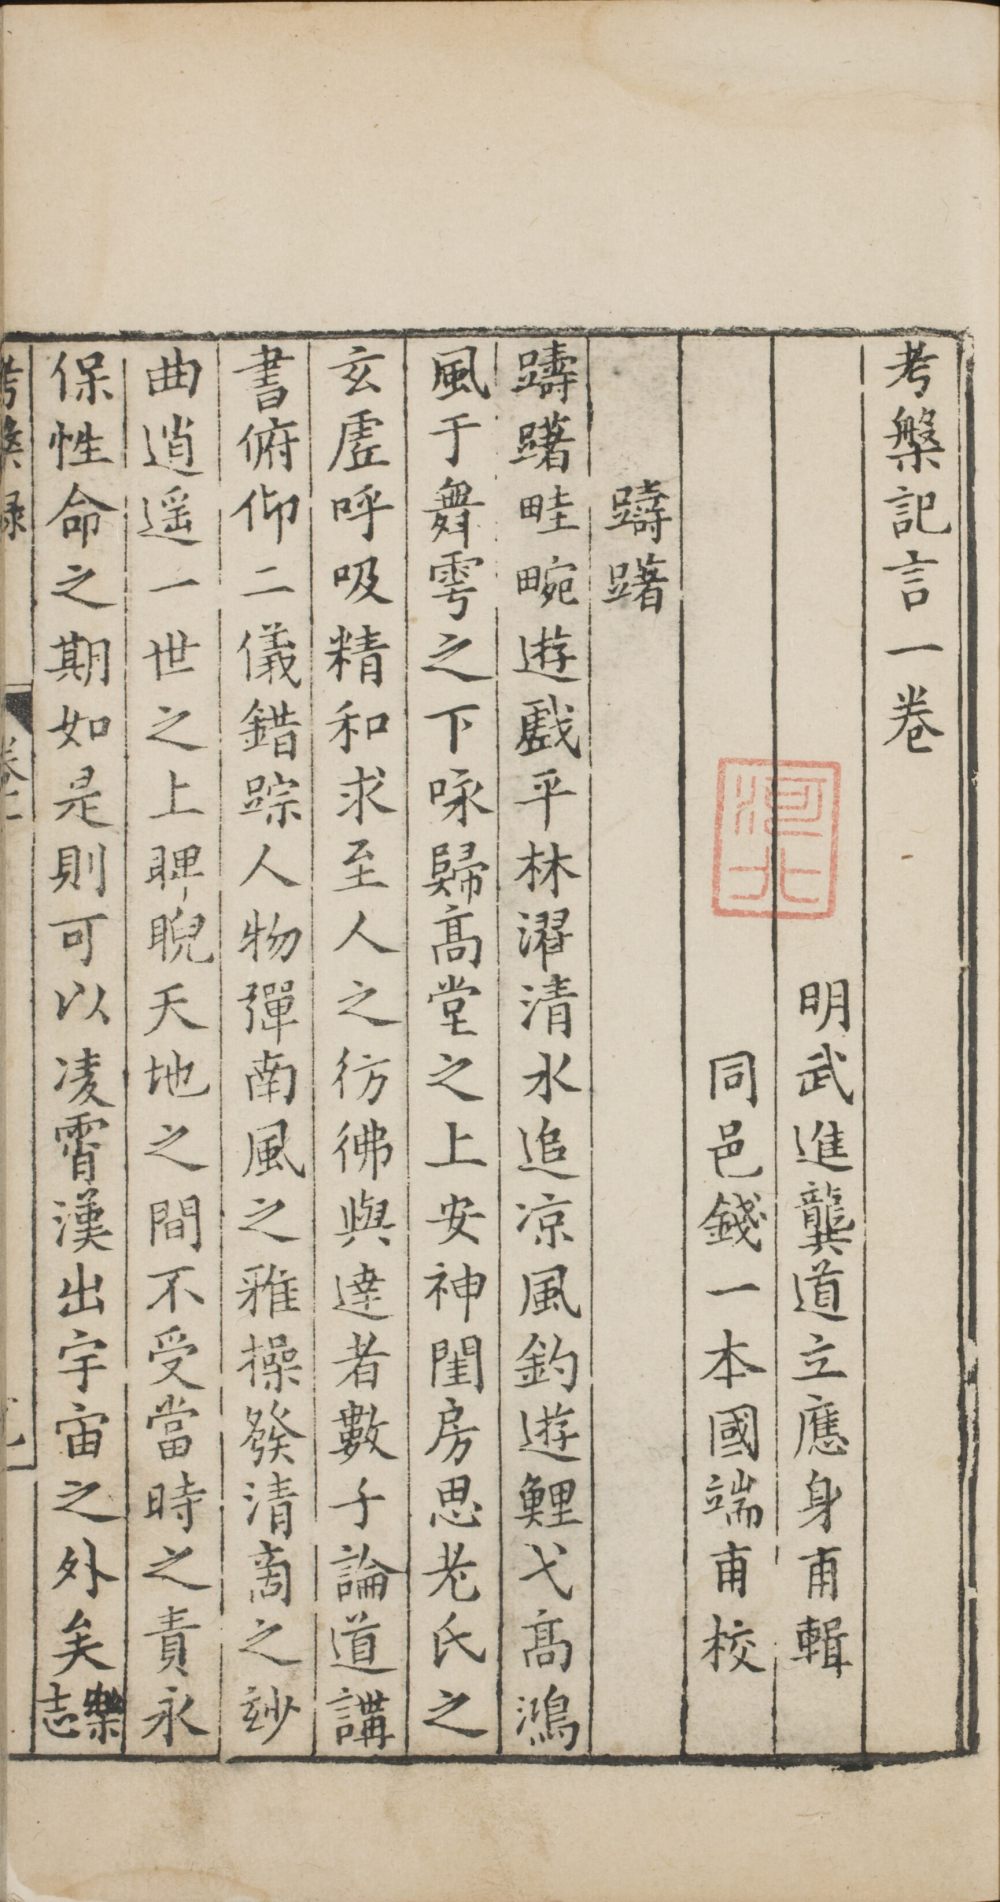 考槃記言一卷
明武進龔道立應身甫輯
同邑錢一本國端甫校
躊躇
躊躇畦畹遊戲平林濯清水追凉風釣遊鯉弋高鴻
風于舞雩之下咏歸高堂之上安神閨房思老氏之
玄虛呼吸精和求至人之彷彿與達者數子論道講
書俯仰二儀錯踪人物彈南風之雅操發清商之玅
曲逍遥一世之上睥睨天地之間不受當時之責永
保性命之期如是則可以凌霄漢出宇宙之外矣樂志
河北